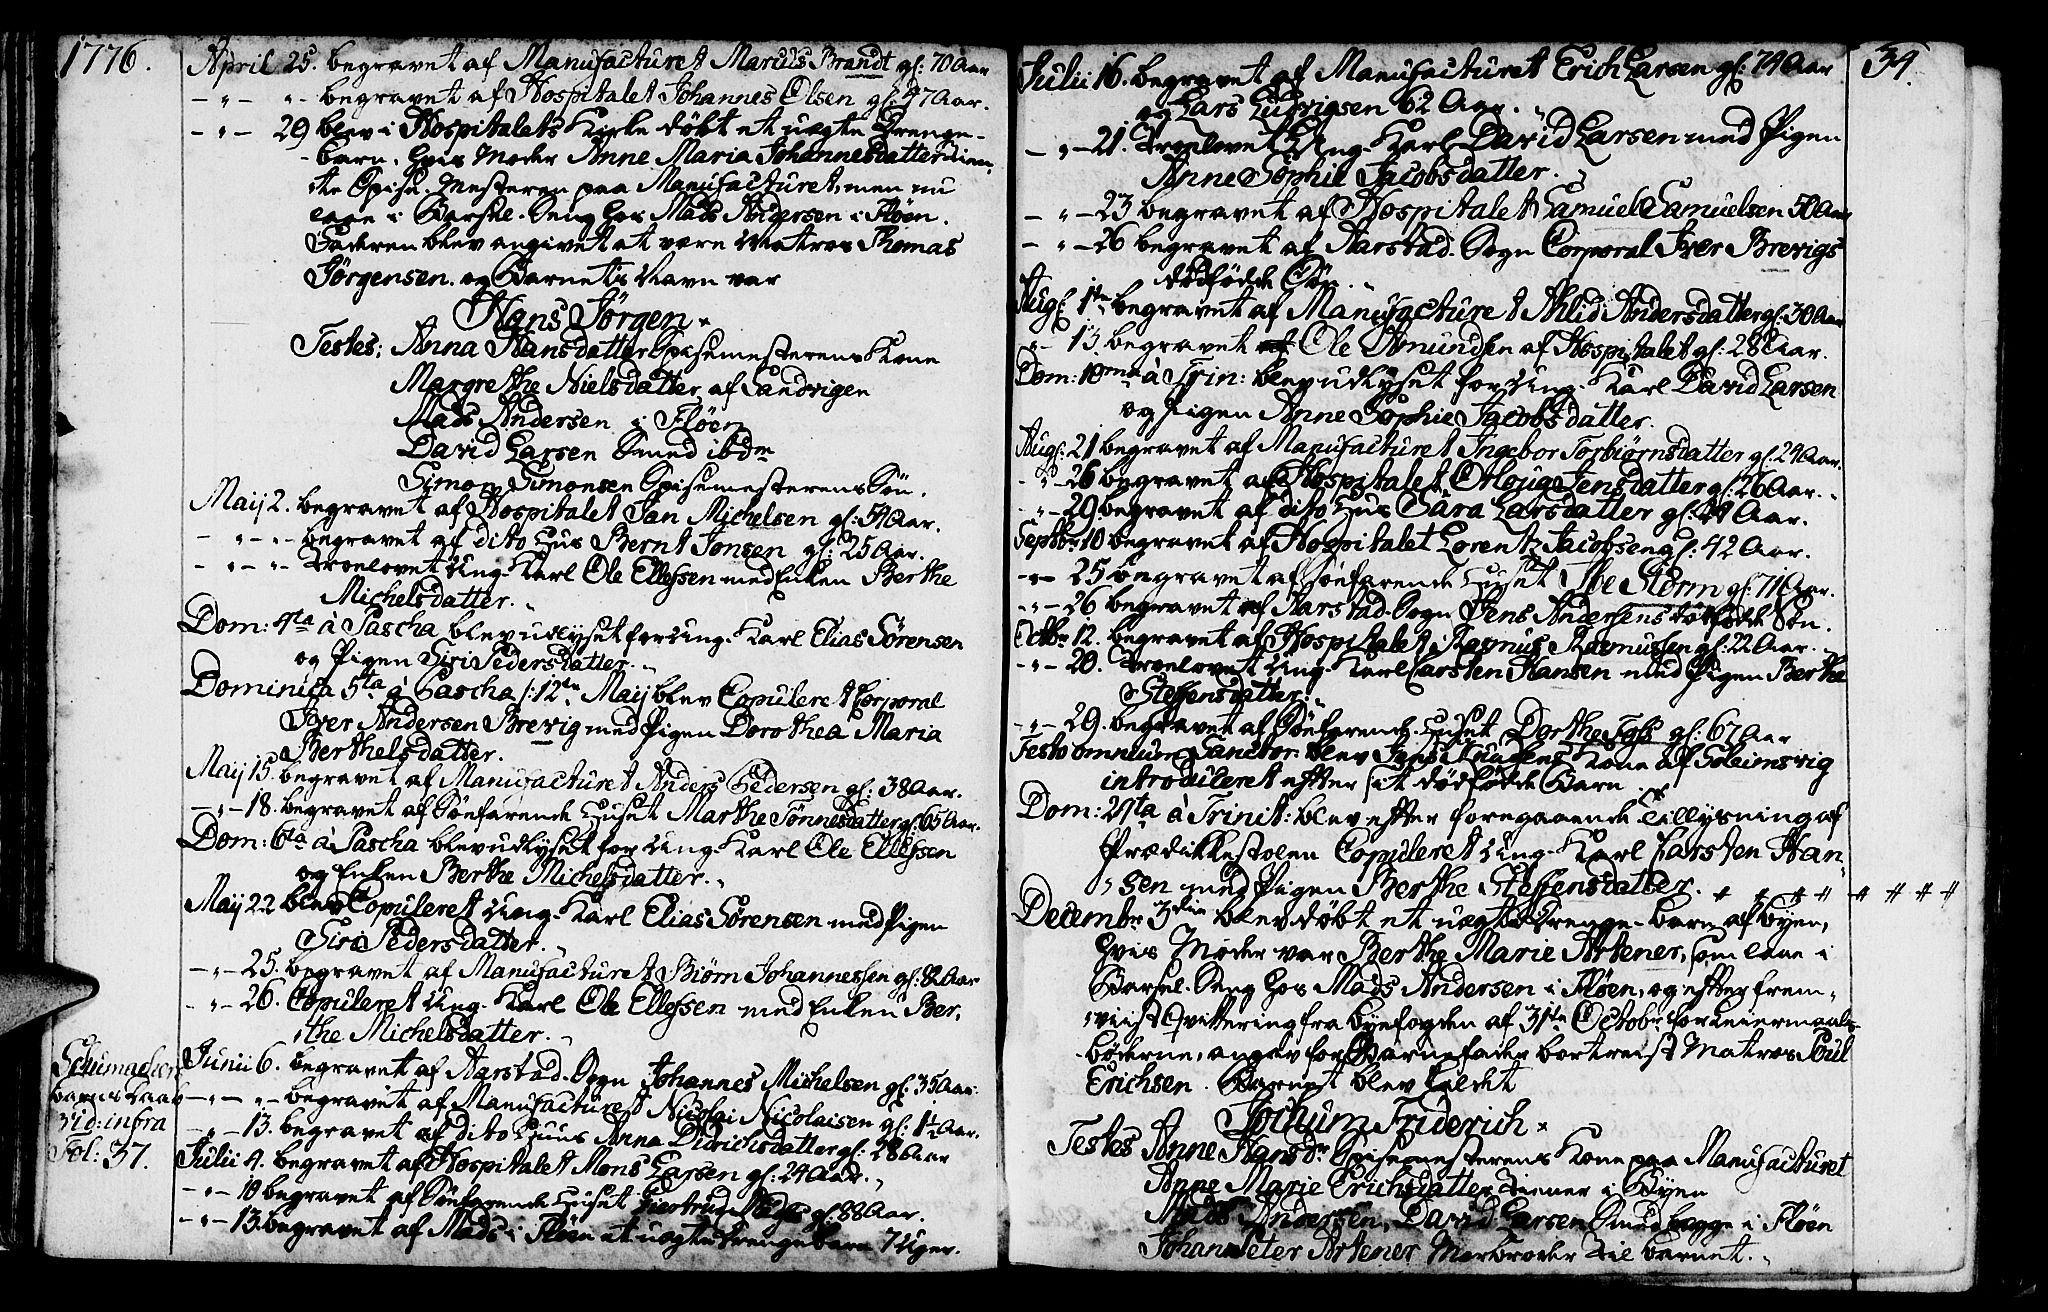 1776.
April 25. begravet af Manufacturet Marcus Brandt gl: 70 Aar
- " - " - begravet af Hospitalet Johannes Olsen gl: 47 Aar.
- " - 29 blev i Hospitalets Kirke døbt et uægte Drenge-
barn, hvis Moder Anne Maria Johannesdatter tien-
te Spise-Mesteren paa Manufacturet, men nu
laae i Barsel-Seng hos Mads Andersen i Fløen.
Faderen blev angivet at være Matros Thomas
Jørgensen. og Barnets Navn var
Hans Jørgen
Testes: Anna Hansdatter Spisemesterens Kone
Margrethe Nielsdatter af Sandvigen
Mads Andersen i Fløen
David Larsen Smed ibdm
Simon Simonsen Spisemesterens Søn.
Maij 2. begravet af Hospitalet Jan Michelsen gl: 54 Aar.
- " - " - begravet af dito Huus Bernt Jonsen gl: 25 Aar.
- " - " - Troelovet Ung-Karl Ole Ellefsen med Enken Berthe
Michelsdatter.
Dom: 4ta à Pascha blev udlyset for Ung-Karl Elias Sørensen
og Pigen Siri Pedersdatter.
Dominica 5ta à Pascha /: 12te Maij blev Copuleret Corporal
Iver Andersen Brevig med Pigen Dorothea Maria
Berthelsdatter.
Maij 15. begravet af Manufacturet Anders Pedersen gl: 38 Aar.
- " - 18. begravet af Søefarende Huset Marthe Tønnesdatter gl: 65 Aar.
Dom: 6ta à Pascha blev udlyset for Ung-Karl Ole Ellefsen
og Enken Berthe Michelsdatter.
Maij 22 blev Copuleret Ung-Karl Elias Sørensen med Pigen
Siri Pedersdatter.
- " - 25. begravet af Manufacturet Biørn Johannessen gl: 82 Aar
- " - 26. Copuleret Ung-Karl Ole Ellefsen med Enken Ber-
the Michelsdatter.
Junii 6. begravet af Aarstad-Sogn Johannes Michelsen gl: 35 Aar.
- " - " - begravet af Manufacturet Nicolai Nicolaisen gl: 1½ Aar.
- " - 13. begravet af dito Huus Anna Didrichsdatter gl: 28 Aar
Julii 4. begravet af Hospitalet Mons Larsen gl: 24 Aar.
- " - 10 begravet af Søefarende Huset Giertrud gl: 88 Aar.
- " - 13. begravet af Mads i Fløen et uægte Drengebarn 7 Uger.
barns Daab
vid: infra
Fol: 37.
34.
Julii 16. begravet af Manufacturet Erich Larsen gl: 74 Aar
og Lars Ludvigsen 62 Aar.
- " - 21. Troelovet Ung-Karl David Larsen med Pigen
Anne Sophie Jacobsdatter.
- " - 23 begravet af Hospitalet Samuel Samuelsen 50 Aar
- " - 26 begravet af Aarstad-Sogn Corporal Iver Brevigs
dødfødde Søn.
Augl: 1te begravet af Manufacturet Ahlid Andersdatter gl: 30 Aar
" - 13 begravet Ole Amundsen af Hospitalet gl: 28 Aar.
Dom: 10ma à Trin: blev udlyset for Ung-Karl David Larsen
og Pigen Anne Sophie Jacobsdatter.
Augl: 21 begravet af Manufacturet Ingebor Torbiørnsdatter gl: 24 Aar.
- " - 26 begravet af Hospitalet Olouga Jensdatter gl: 26 Aar.
- " - 29 begravet af dito Hus Sara Larsdatter gl: Aar.
Septbr 10 begravet af Hospitalet Lorentz Jacobsen gl: 42 Aar.
- " - 25 begravet af Søefarende Huset Ibe Storm gl: 71 Aar.
- " - 26 begravet af Aarstad-Sogn Jens Andersens dødfødde Søn.
Octbr 12. begravet af Hospitalet Rasmus Rasmussen gl: 22 Aar.
- " - 20. Troelovet Ung-Karl Carsten Hansen med Pigen Berthe
Steffensdatter.
- " - 29. begravet af Søefarende Huset Dorthe Foss gl: 67 Aar
Festo omnium Sanctor: blev Jens Knudsens Kone af Soleimsvig
introduceret efter sit dødfødde Barn
Dom: 21ta à Trinit: blev efter foregaaende Tillysning af
Prædikkestolen Copuleret Ung-Karl Carsten Han-
sen med Pigen Berthe Steffensdatter.
Decembr 3die blev døbt et uægte Drenge-barn af Byen,
hvis Moder var Berthe Marie Artener, som laae i
Barsel-Seng hos Mads Andersen i Fløen, og efter frem-
viist Qvittering fra Byefogden af 31te Octobr for Leiermaals-
bøderne, angav for Barnefader bortreist Matros Poul
Erichsen. Barnet blev kaldet
Jochum Friderich
Testes Anne Hansdr Spisemesterens Kone paa Manufacturet
Anne Marie Erichsdatter tiener i Byen
Mads Andersen, David Larsen Smed begge i Fløen
Johan Peter Artener Morbroder til Barnet.